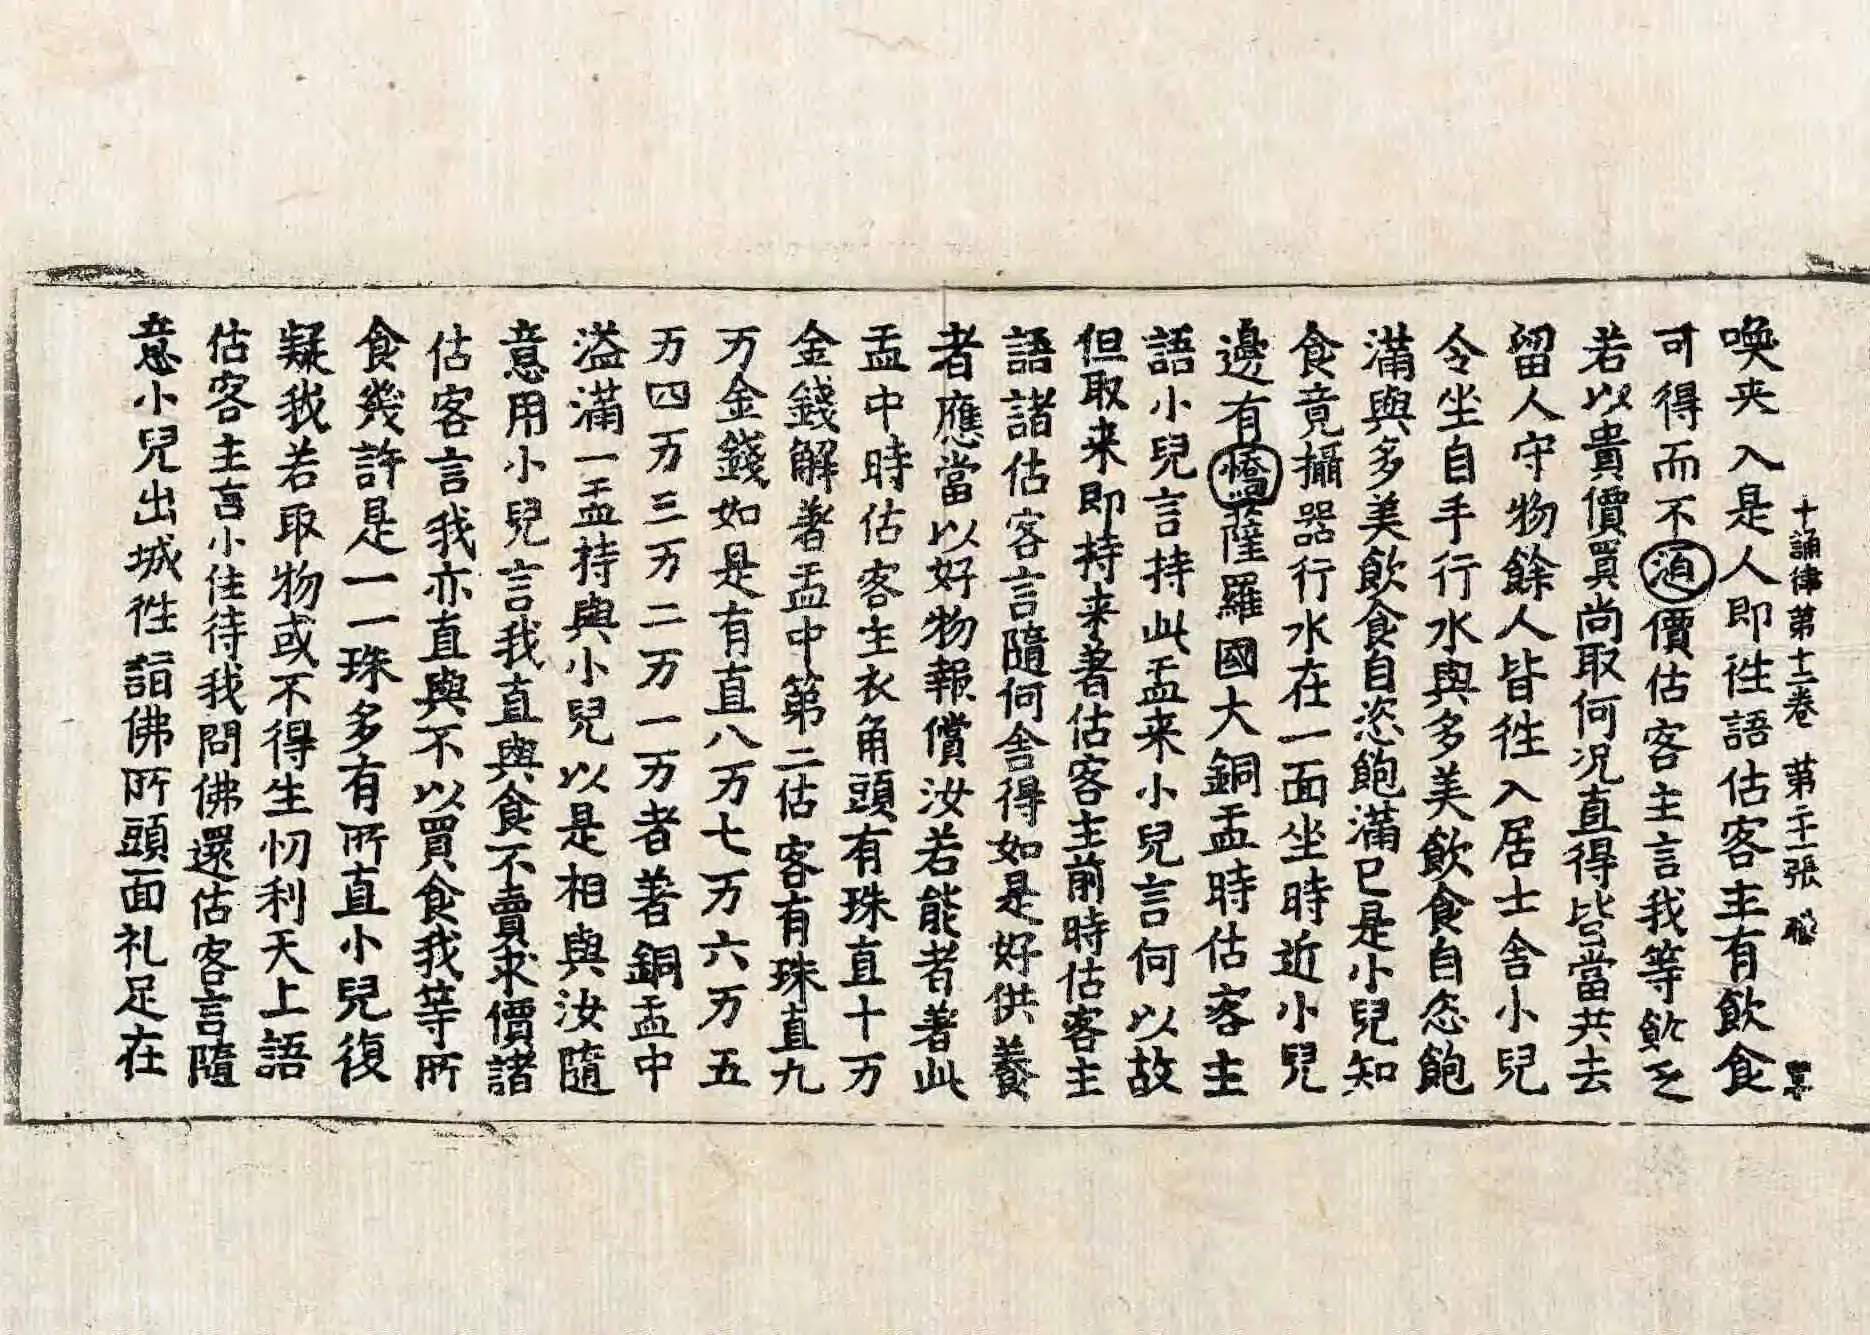 十誦律第十二卷 張
喚夹入是人即徃語估客主有飲食
可得而不湏價估客主言我等飢乏
若以貴價買尚取何況直得皆當共去
留人守物餘人皆徃入居士舍小兒
令坐自手行水與多美飲食自恣飽
滿與多美飲食自恣飽滿已是小兒知
食竟攝器行水在一面坐時近小兒
邊有憍薩羅國大銅盂時估客主
語小兒言持此盂来小兒言何以故
但取来即持来著估客主前時估客主
語諸估客言隨何舍得如是好供養
者應當以好物報償汝若能者著此
盂中時估客主衣角頭有珠直十万
金錢解著盂中第二估客有珠直九
万金錢如是有直八万七万六万五
万四万三万二万一万者著銅盂中
溢滿一盂持與小兒以是相與汝隨
意用小兒言我直與食不賣求價諸
估客言我亦直與不以買食我等所
食幾許是一一珠多有所直小兒復
疑我若取物或不得生忉利天上語
估客主言小住待我問佛還估客言隨
意小兒出城徃詣佛所頭面礼足在